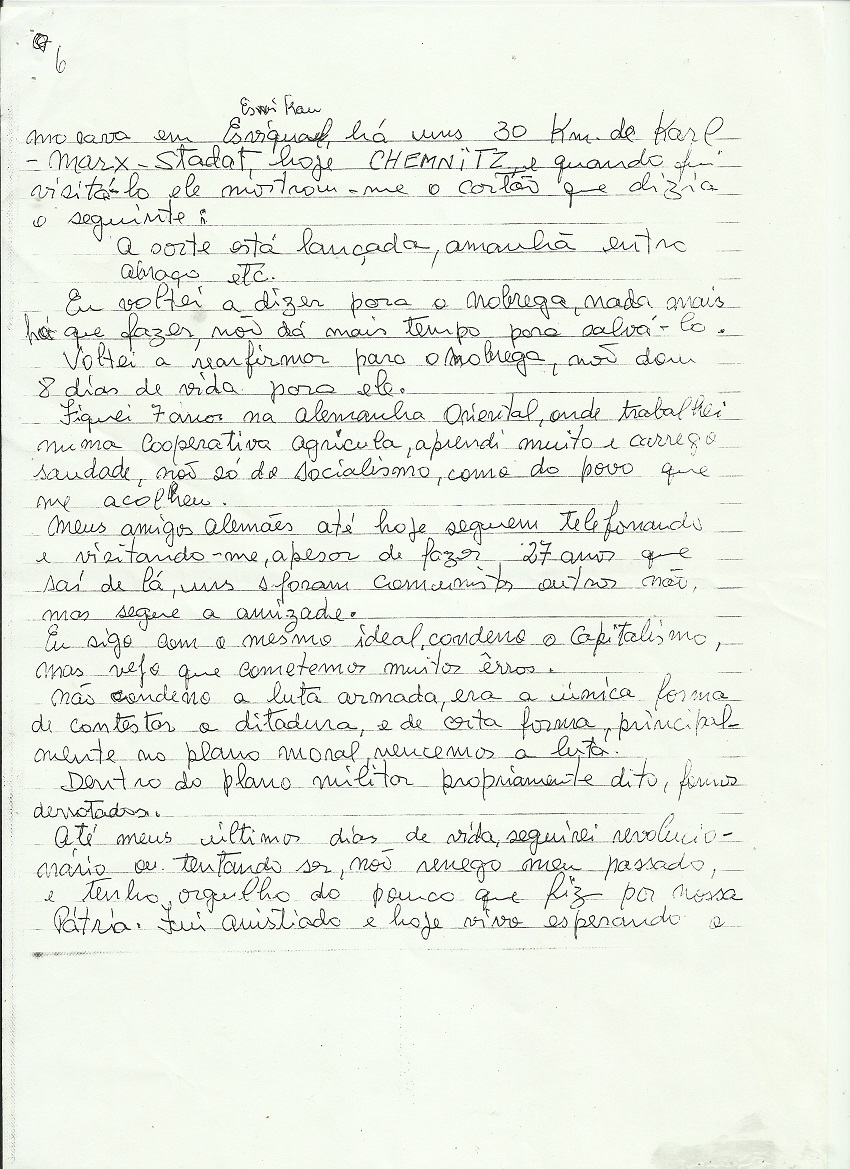 6
Eswi Kau
morava em Esviquaf, há uns 30 Km. de Karl
- Marx - Stadat, hoje CHEMNITZ, e quando fui
visitá-lo ele mostrou-me o cartão que dizia
o seguinte:
A sorte está lançada, amanhã entro
abraço etc.
Eu voltei a dizer para o Nobrega, nada mais
há que fazer, não dá mais tempo para salvá-lo.
Voltei a rearfirmar para o Nobrega, não dou
8 dias de vida para ele.
Fiquei 7 anos na Alemanha Oriental, onde trabalhei
numa Cooperativa agrícula, aprendi muito e carrego
saudade, não só do socialismo, como do povo que
me acolheu.
Meus amigos Alemães até hoje seguem telefonando
e visitando-me, apesar de fazer 27 anos que
saí de lá, uns foram Comunistas outros não,
mas segue a amizade.
Eu sigo com o mesmo ideal, condeno o Capitalismo,
mas vejo que cometemos muitos êrros.
Não condeno a luta armada, era a única forma
de contestar a ditadura, e de certa forma, principal-
mente no plano moral, vencemos a luta.
Dentro do plano militar propriamente dito, fomos
derrotados.
Até meus últimos dias de vida, seguirei revolucio-
nário ou tentando ser, não renego meu passado,
e tenho orgulho do pouco que fiz por nossa
Pátria. Fui anistiado e hoje vivo esperando a